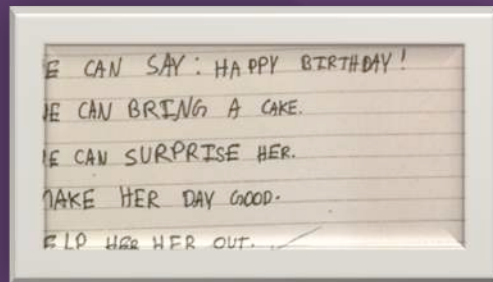 E CAN SAY: HAPPY BIRTHDAY!
E CAN BRING A CAKE.
E CAN SURPRISE HER.
MAKE HER DAY GOOD.
ELP HER HER OUT.